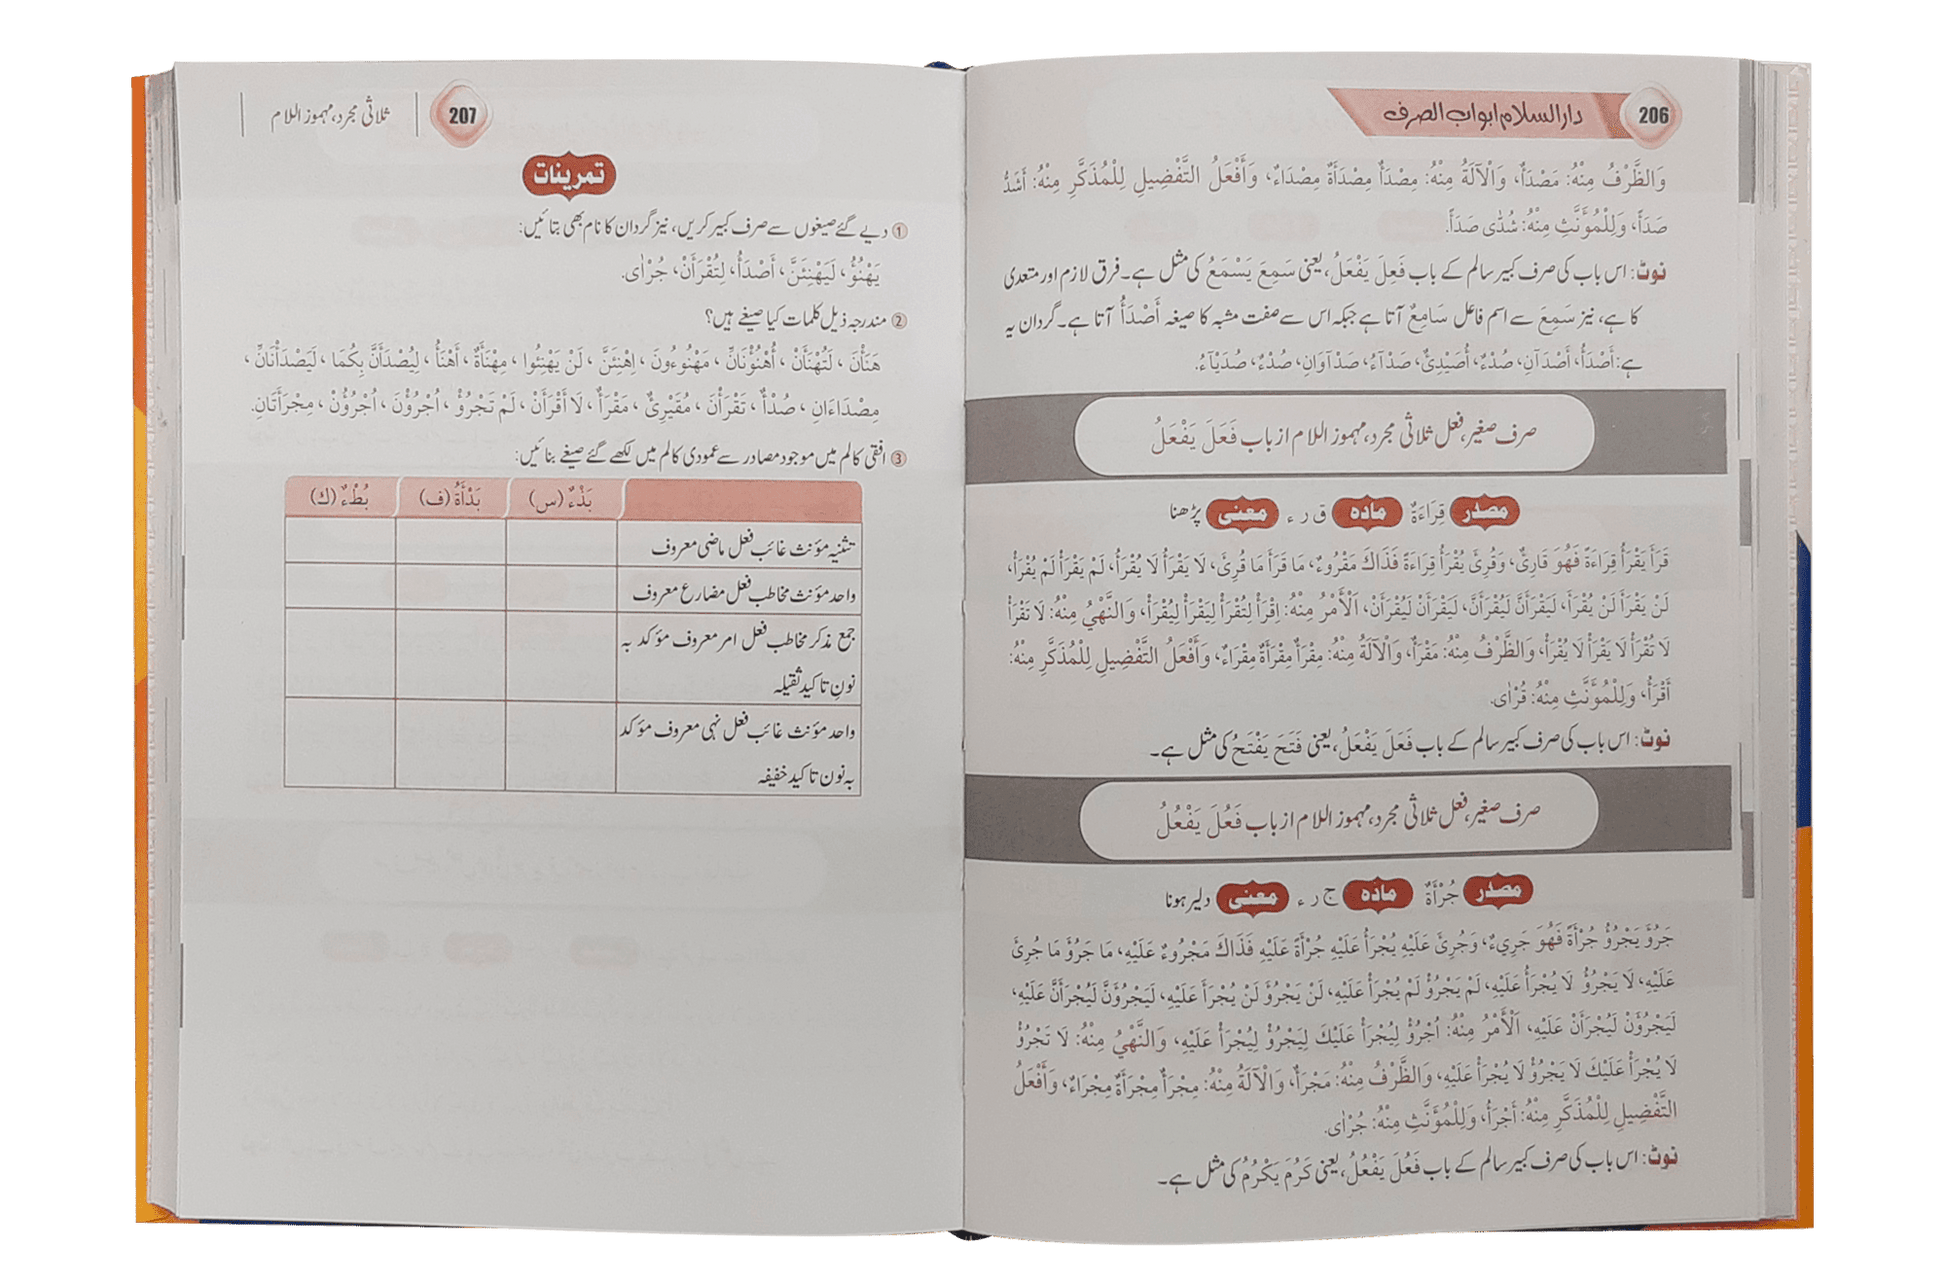 206
دارالسلام ابواب الصرف
وَالظَّرْفُ مِنْهُ: مَصْدَأٌ، وَالْآلَةُ مِنْهُ: مِصْدَأٌ مِصْدَأَةٌ مِصْدَاءٌ، وَأَفْعَلُ التَّفْضِيلِ لِلْمُذَكَّرِ مِنْهُ: أَشَدُّ
صَدَأً، وَلِلْمُؤَنَّثِ مِنْهُ: شُدّٰى صَدَأً.
نوٹ: اس باب کی صرف کبیر سالم کے باب فَعِلَ يَفْعَلُ، یعنی سَمِعَ يَسْمَعُ کی مثل ہے۔ فرق لازم اور متعدی
کا ہے، نیز سَمِعَ سے اسم فاعل سَامِعٌ آتا ہے جبکہ اس سے صفت مشبہ کا صیغہ أَصْدَأُ آتا ہے۔ گردان یہ
ہے: أَصْدَأُ، أَصْدَآنِ، صُدْءٌ، أُصَيْدِئٌ، صَدْآءُ، صَدْآوَانِ، صُدْءٌ، صُدَيْآءُ.
صرف صغیر، فعل ثلاثی مجرد، مہموز اللام از باب فَعَلَ يَفْعَلُ
مصدر قِرَاءَةٌ مادہ ق ر ء معنی پڑھنا
قَرَأَ يَقْرَأُ قِرَاءَةً فَهُوَ قَارِئٌ، وَقُرِئَ يُقْرَأُ قِرَاءَةً فَذَاكَ مَقْرُوءٌ، مَا قَرَأَ مَا قُرِئَ، لَا يَقْرَأُ لَا يُقْرَأُ، لَمْ يَقْرَأْ لَمْ يُقْرَأْ،
لَنْ يَقْرَأَ لَنْ يُقْرَأَ، لَيَقْرَأَنَّ لَيُقْرَأَنَّ، لَيَقْرَأَنْ لَيُقْرَأَنْ، اَلْأَمْرُ مِنْهُ: اِقْرَأْ لِتُقْرَأْ لِيَقْرَأْ لِيُقْرَأْ، وَالنَّهْيُ مِنْهُ: لَا تَقْرَأْ
لَا تُقْرَأْ لَا يَقْرَأْ لَا يُقْرَأْ، وَالظَّرْفُ مِنْهُ: مَقْرَأٌ، وَالْآلَةُ مِنْهُ: مِقْرَأٌ مِقْرَأَةٌ مِقْرَاءٌ، وَأَفْعَلُ التَّفْضِيلِ لِلْمُذَكَّرِ مِنْهُ:
أَقْرَأُ، وَلِلْمُؤَنَّثِ مِنْهُ: قُرْاٰى.
نوٹ: اس باب کی صرف کبیر سالم کے باب فَعَلَ يَفْعَلُ، یعنی فَتَحَ يَفْتَحُ کی مثل ہے۔
صرف صغیر، فعل ثلاثی مجرد، مہموز اللام از باب فَعُلَ يَفْعُلُ
مصدر جُرْأَةٌ مادہ ج ر ء معنی دلیر ہونا
جَرُؤَ يَجْرُؤُ جُرْأَةً فَهُوَ جَرِيءٌ، وَجُرِئَ عَلَيْهِ يُجْرَأُ عَلَيْهِ جُرْأَةً عَلَيْهِ فَذَاكَ مَجْرُوءٌ عَلَيْهِ، مَا جَرُؤَ مَا جُرِئَ
عَلَيْهِ، لَا يَجْرُؤُ لَا يُجْرَأُ عَلَيْهِ، لَمْ يَجْرُؤْ لَمْ يُجْرَأْ عَلَيْهِ، لَنْ يَجْرُؤَ لَنْ يُجْرَأَ عَلَيْهِ، لَيَجْرُؤَنَّ لَيُجْرَأَنَّ عَلَيْهِ،
لَيَجْرُؤَنْ لَيُجْرَأَنْ عَلَيْهِ، اَلْأَمْرُ مِنْهُ: اُجْرُؤْ لِيُجْرَأْ عَلَيْكَ لِيَجْرُؤْ لِيُجْرَأْ عَلَيْهِ، وَالنَّهْيُ مِنْهُ: لَا تَجْرُؤْ
لَا يُجْرَأْ عَلَيْكَ لَا يَجْرُؤْ لَا يُجْرَأْ عَلَيْهِ، وَالظَّرْفُ مِنْهُ: مَجْرَأٌ، وَالْآلَةُ مِنْهُ: مِجْرَأٌ مِجْرَأَةٌ مِجْرَاءٌ، وَأَفْعَلُ
التَّفْضِيلِ لِلْمُذَكَّرِ مِنْهُ: أَجْرَأُ، وَلِلْمُؤَنَّثِ مِنْهُ: جُرْاٰى.
نوٹ: اس باب کی صرف کبیر سالم کے باب فَعُلَ يَفْعُلُ، یعنی كَرُمَ يَكْرُمُ کی مثل ہے۔
207
ثلاثی مجرد، مہموز اللام
تمرینات
① دیے گئے صیغوں سے صرف کبیر کریں، نیز گردان کا نام بھی بتائیں:
يَهْنُؤُ، لَيَهْنِئَنَّ، أَصْدَأُ، لِتُقْرَأَنْ، جُرْاٰى.
② مندرجہ ذیل کلمات کیا صیغے ہیں؟
هَنَأْنَ، لَتُهْنَأَنْ، أُهْنُؤْنَانِّ، مَهْنُوءُونَ، اِهْنِئَنَّ، لَنْ يَهْنِئُوا، مِهْنَأَةٌ، أَهْنَأُ، لِيُصْدَأَنَّ بِكُمَا، لَيَصْدَأْنَانِّ،
مِصْدَاءَانِ، صُدْأٌ، تَقْرَأْنَ، مُقَيْرِئٌ، مَقْرَأٌ، لَا أَقْرَأَنْ، لَمْ تَجْرُؤْ، اُجْرُؤْنَ، اُجْرُؤْنَ، مِجْرَأَتَانِ.
③ افقی کالم میں موجود مصادر سے عمودی کالم میں لکھے گئے صیغے بنائیں:
بَذْءٌ (س) بَدْأَةٌ (ف) بُطْءٌ (ك)
تثنیہ مؤنث غائب فعل ماضی معروف
واحد مؤنث مخاطب فعل مضارع معروف
جمع مذکر مخاطب فعل امر معروف مؤکد بہ
نونِ تاکید ثقیلہ
واحد مؤنث غائب فعل نہی معروف مؤکد
بہ نون تاکید خفیفہ